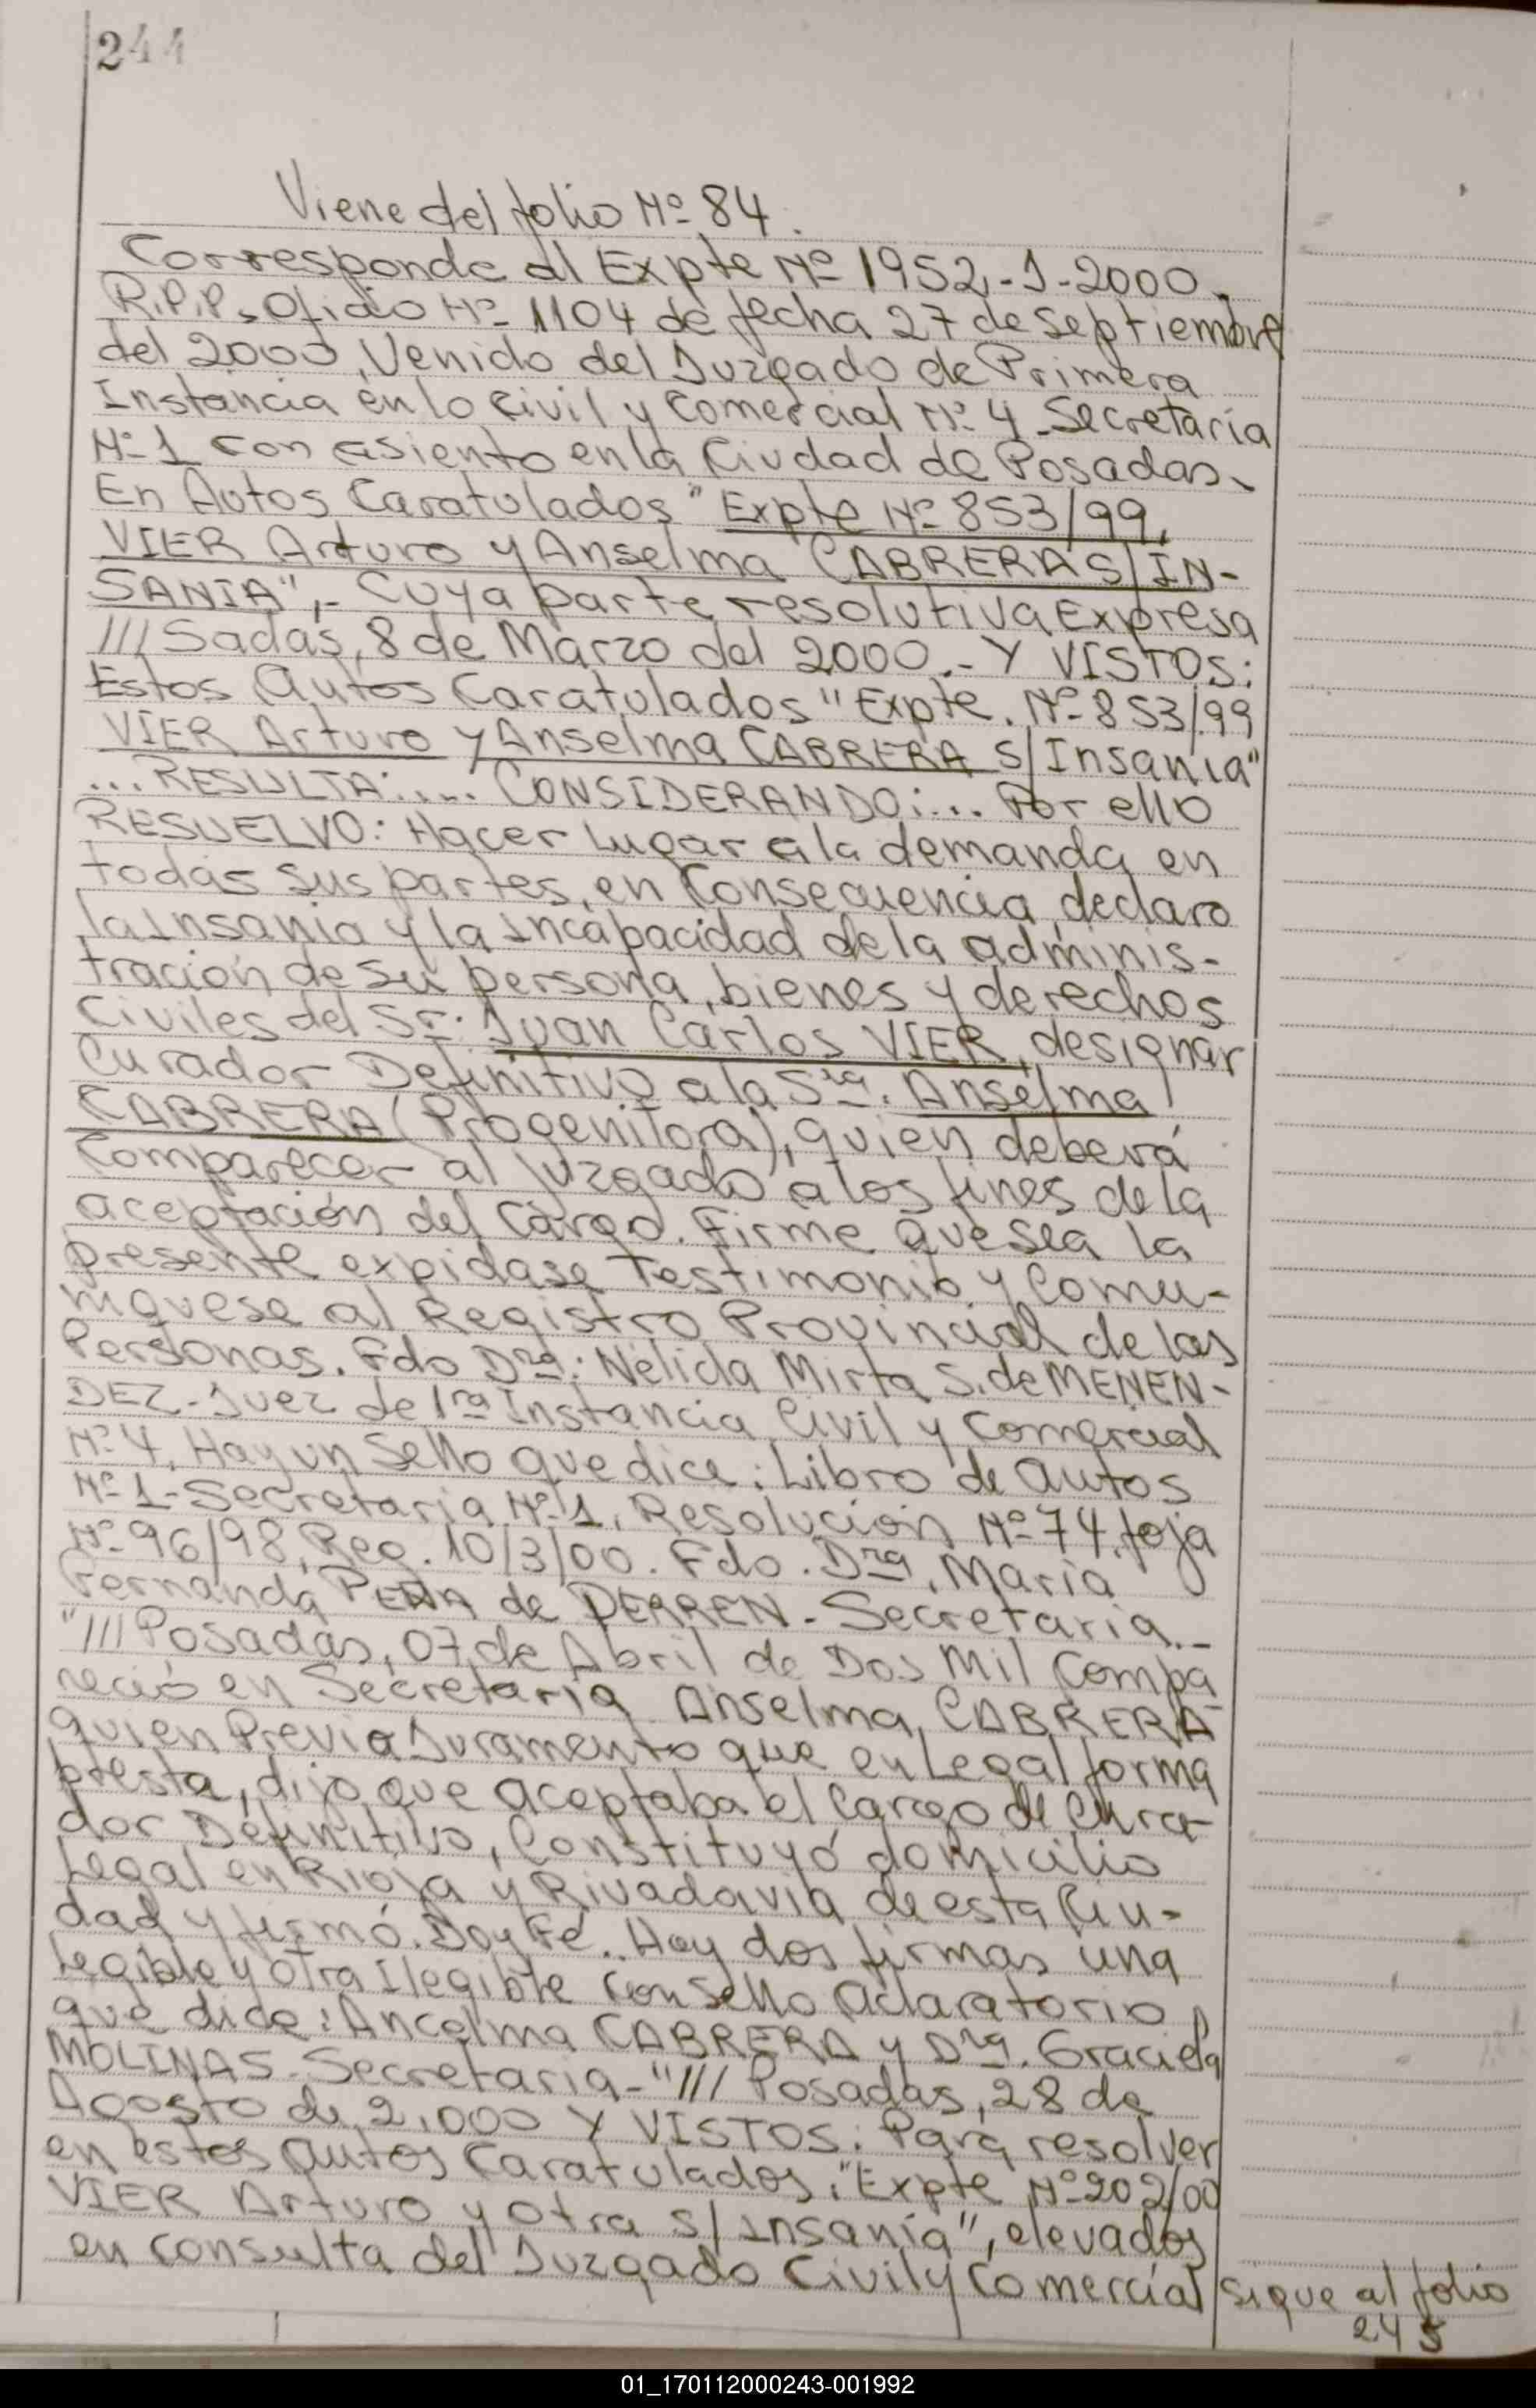 244
Viene del folio Nº 84.
Corresponde al Expte Nº 1952-J-2000.
R.P.P. Oficio Nº 1104 de fecha 27 de septiembre
del 2000, Venido del Juzgado de Primera
Instancia en lo Civil y Comercial Nº 4 - Secretaría
Nº 1 con asiento en la Ciudad de Posadas.
En Autos Caratulados "Expte Nº 853/99,
VIER Arturo y Anselma CABRERA S/IN-
SANIA",- Cuya parte resolutiva Expresa
///Sadas, 8 de Marzo del 2000.- Y VISTOS:
Estos autos Caratulados "Expte. Nº 853/99
VIER Arturo y Anselma CABRERA S/Insania"
...RESULTA:.... CONSIDERANDO:... Por ello
RESUELVO: Hacer lugar a la demanda en
todas sus partes, en consecuencia, declaro
la Insania y la Incapacidad de la adminis-
tración de su persona, bienes y derechos
Civiles del Sr: Juan Carlos VIER, designar
Curador Definitivo a la Sra. Anselma
CABRERA (Progenitora), quien deberá
Comparecer al Juzgado a los fines de la
aceptación del cargo. Firme que sea la
presente expidase Testimonio y Comu-
niquese al Registro Provincial de las
Personas. Fdo Dra: Nélida Mirta S. de MENEN-
DEZ - Juez de 1ra Instancia Civil y Comercial
Nº 4, Hay un Sello que dice: Libro de autos
Nº 1 - Secretaria Nº 1, Resolución Nº 74, foja
Nº 96/98, Reg. 10/3/00. Fdo. Dra. María
Fernanda PEÑA de PERREN - Secretaria.-
"///Posadas, 07 de Abril de Dos Mil Compa
reció en Secretaria Anselma, CABRERA
quien Previo Juramento que en Legal forma
presta, dijo que aceptaba el Cargo de Cura-
dor Definitivo, Constituyó domicilio
Legal en Rioja y Rivadavia de esta Ciu-
dad y firmó. Doy Fé. Hay dos firmas una
legible y otra Ilegible con sello aclaratorio
que dice: Ancelma CABRERA y Dra. Graciela
MOLINAS - Secretaria - "/// Posadas, 28 de
Agosto de 2.000 Y VISTOS: Para resolver
en estos autos Caratulados, "Expte Nº 202/00
VIER Arturo y Otra S/Insanía", elevados
en consulta del Juzgado Civil y Comercial
Sigue al folio
245
01_170112000243-001992